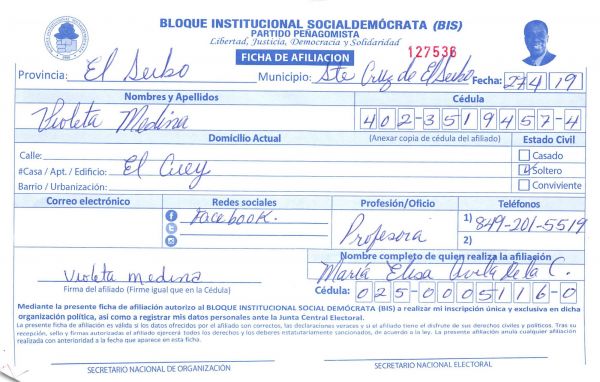 BLOQUE INSTITUCIONAL SOCIALDEMÓCRATA (BIS)
PARTIDO PEÑAGOMISTA
Libertad, Justicia, Democracia y Solidaridad
FICHA DE AFILIACION
127536
Provincia: El Seibo Municipio: Sta Cruz de El Seibo Fecha: 27 4 19
Nombres y Apellidos Cédula
Violeta Medina 402-3519457-4
Domicilio Actual (Anexar copia de cédula del afiliado) Estado Civil
Calle: Casado
#Casa / Apt. / Edificio: El Cuey Soltero
Barrio / Urbanización: Conviviente
Correo electrónico Redes sociales Profesión/Oficio Teléfonos
Facebook. Profesora 1) 849-201-5519
2)
Nombre completo de quien realiza la afiliación
Violeta medina María Elisa Avila de la C.
Firma del afiliado (Firme igual que en la Cédula) Cédula: 025-0005116-0
Mediante la presente ficha de afiliación autorizo al BLOQUE INSTITUCIONAL SOCIAL DEMÓCRATA (BIS) a realizar mi inscripción única y exclusiva en dicha
organización política, así como a registrar mis datos personales ante la Junta Central Electoral.
La presente ficha de afiliación es válida si los datos ofrecidos por el afiliado son correctos, las declaraciones veraces y si el afiliado tiene el disfrute de sus derechos civiles y políticos. Tras su
recepción, sello y firmas autorizadas el afiliado ejercerá todos los derechos y los deberes estatutariamente sancionados, de acuerdo a la ley. La presente afiliación anula cualquier afiliación
realizada con anterioridad a la fecha que aparece en esta ficha.
SECRETARIO NACIONAL DE ORGANIZACIÓN SECRETARIO NACIONAL ELECTORAL